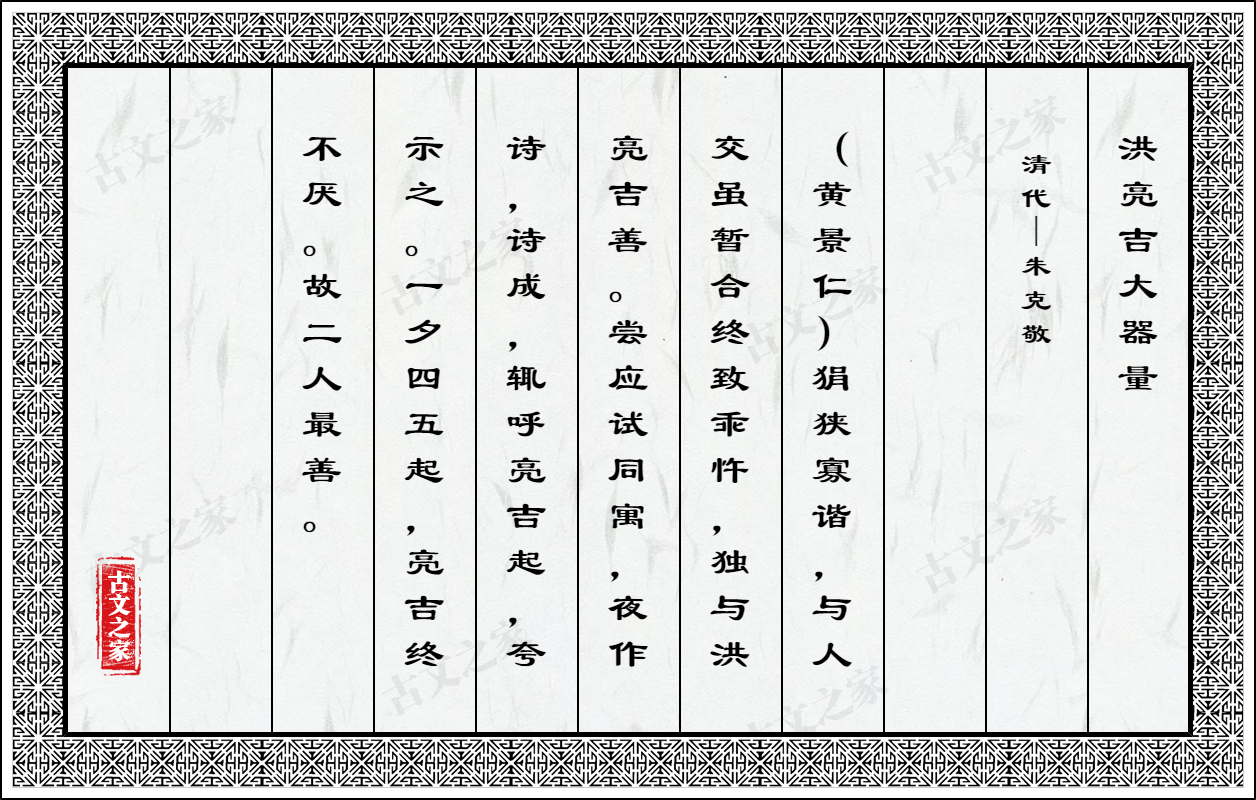 洪亮吉大器量
清代—朱克敬
（黄景仁）狷狭寡谐，与人
交虽暂合终致乖忤，独与洪
亮吉善。尝应试同寓，夜作
诗，诗成，辄呼亮吉起，夸
示之。一夕四五起，亮吉终
不厌。故二人最善。
古文之家